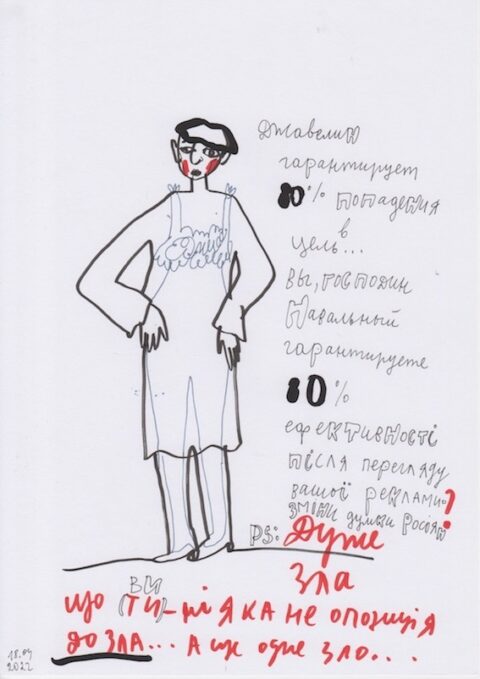 Джавелин
гарантирует
80% попадения
в
цель...
вы, господин
Навальный
гарантируете
80%
ефективності
після перегляду
вашої реклами
зміни думки Росіян?
PS: Дуже
зла
що ви
(ти) ніяка не опозиція
до зла... а ще одне зло...
18.04
2022